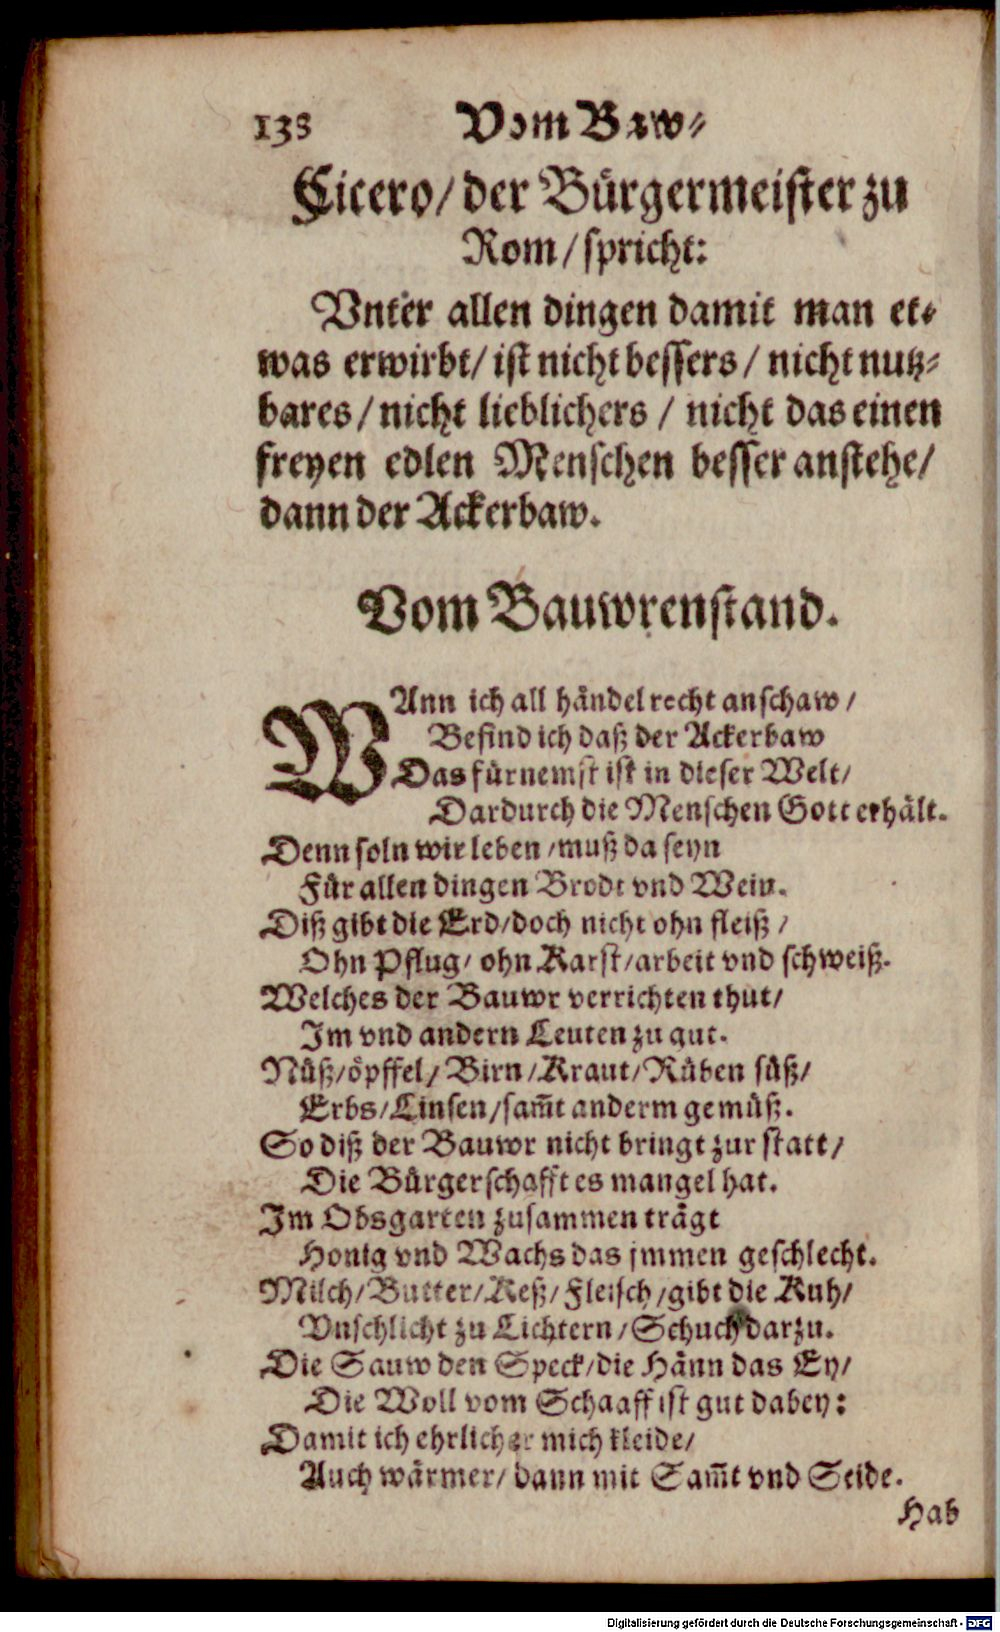 138 Vom Baw⸗
Cicero/ der Bürgermeister zu
Rom/ spricht:
Vnter allen dingen damit man et⸗
was erwirbt/ ist nicht bessers/ nicht nutz⸗
bares/ nicht lieblichers/ nicht das einen
freyen edlen Menschen besser anstehe/
dann der Ackerbaw.
Vom Bauwrenstand.
WAnn ich all händel recht anschaw/
Befind ich daß der Ackerbaw
Das fürnemst ist in dieser Welt/
Dardurch die Menschen Gott erhält.
Denn soln wir leben/ muß da seyn
Für allen dingen Brodt vnd Wein.
Diß gibt die Erd/ doch nicht ohn fleiß/
Ohn Pflug/ ohn Karst/ arbeit vnd schweiß.
Welches der Bauwr verrichten thut/
Im vnd andern Leuten zu gut.
Nüß/ öpffel/ Birn/ Kraut/ Rüben süß/
Erbs/ Linsen/ sam̃t anderm gemüß.
So diß der Bauwr nicht bringt zur statt/
Die Bürgerschafft es mangel hat.
Im Obsgarten zusammen trägt
Honig vnd Wachs das jmmen geschlecht.
Milch/ Butter/ Keß/ Fleisch/ gibt die Kuh/
Vnschlicht zu Lichtern/ Schuch darzu.
Die Sauw den Speck/ die Hänn das Ey/
Die Woll vom Schaaff ist gut dabey:
Damit ich ehrlicher mich kleide/
Auch wärmer/ dann mit Sam̃t vnd Seide.
Hab
Digitalisierung gefördert durch die Deutsche Forschungsgemeinschaft - DFG